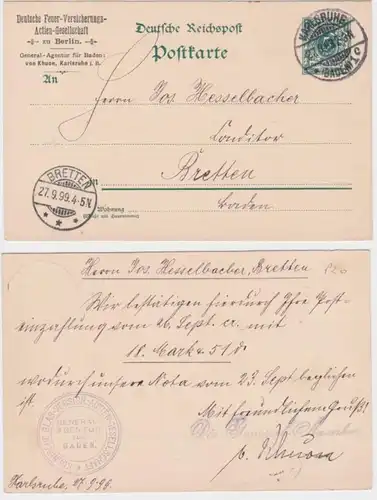 Deutsche Feuer-Versicherungs-
Actien-Gesellschaft
zu Berlin.
General-Agentur für Baden:
von Khuon, Karlsruhe i. B.
Deutsche Reichspost
Postkarte
KARLSRUHE
(BADEN) 1c
An
Herrn Jos Hesselbacher
Conditor
in
Bretten
Baden
Wohnung
BRETTEN
27.9.99.4-5N
Herrn Jos. Hesselbacher, Bretten
Wir bestätigen hierdurch Ihre Post-
einzahlung vom 26 Sept. cr. mit
18. Mark & 51 d
wodurch unsere Nota vom 23 Sept beglichen
ist.
Mit freundlichem Gruß!
GENERAL
AGENTUR
FÜR
BADEN.
p. Khuon
Karlsruhe, 27.9.99.